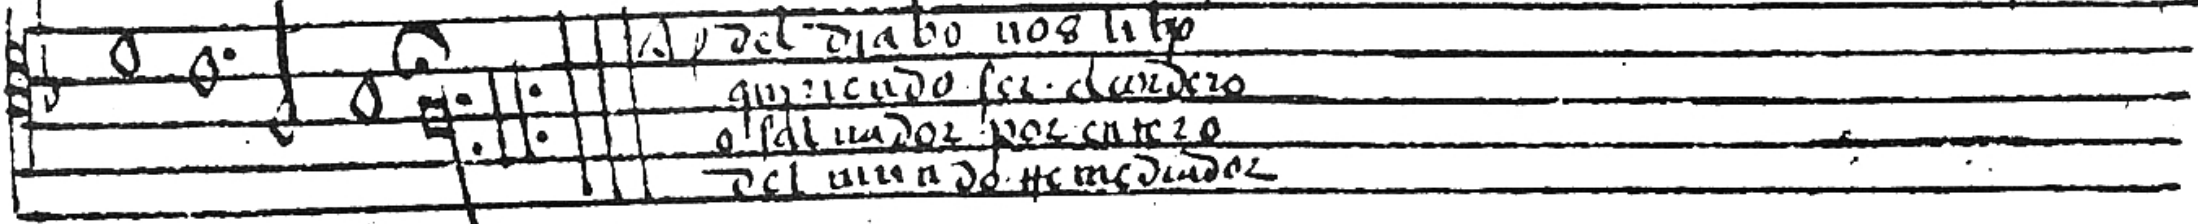 del diablo nos libro
queriendo ser corđero
o saluador por entero
del mundo Remediador